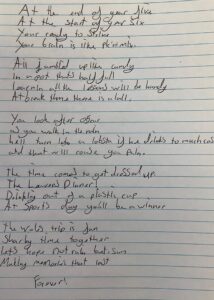 At the end of year five
At the start of year six
Your ready to strive
Your brain is like Pic n mix.
All jumbled up like candy
In a pot that's half full
Learnin all the lessons will be handy
At break time there is a ball.
You look after
as you walk in the
he'll turn into a lobster if he drinks to much
and that will cause you Pain.
The time comes to get dressed up.
The Leavers Dinner!
Drinking out of a plastic cup
At Sports day you'll be a winner
The Wales trip is fun
Sharing time together
Let's hope not rain but sun
Making memories that last
Forever!